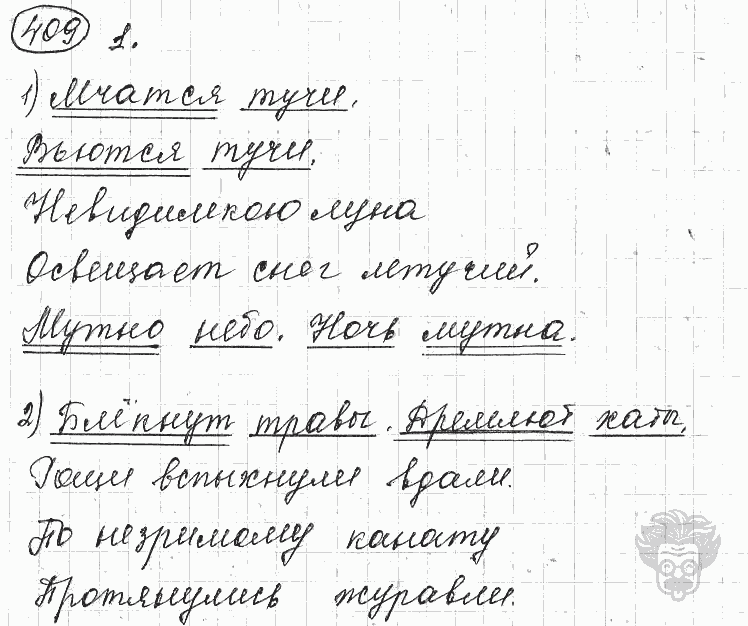 409 1.
1) Мчатся тучи.
Вьются тучи.
Невидимкою луна
Освещает снег летучий.
Мутно небо. Ночь мутна.
2) Блёкнут травы. Дремлют хаты.
Рощи вспыхнули вдали.
По незримому канату
Протянулись журавли.